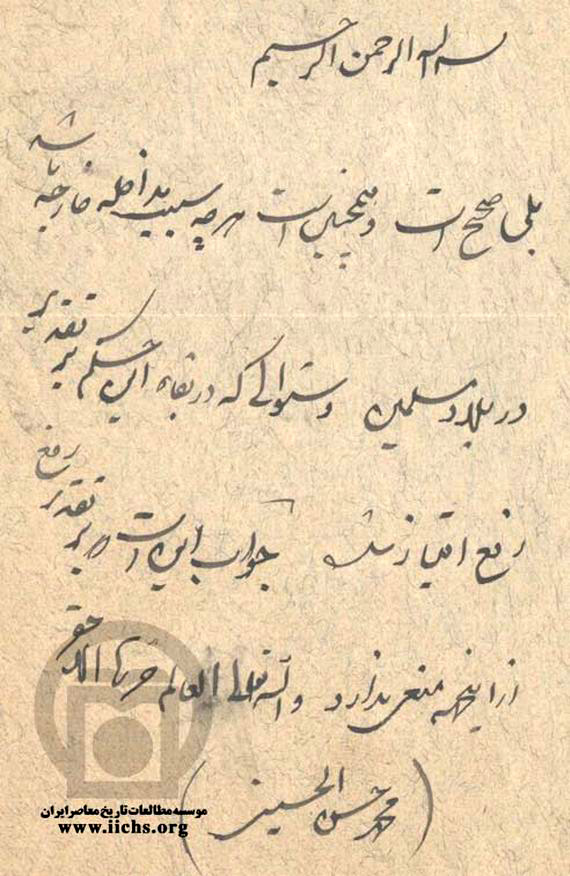 بسم الله الرحمن الرحیم
بلی صحیح است و همچنین است هرچه سبب مداخله خارجه باشد
در بلاد مسلمین و سئوالی که در بقاء این حکم بر تقدیر
رفع امتیاز شد جواب این است بر تقدیر رفع
از اینجهه منعی ندارد والله تعالی العالم حرره الاحقر
(محمد حسن الحسینی)
موسسه مطالعات تاریخ معاصر ایران
www.iichs.org